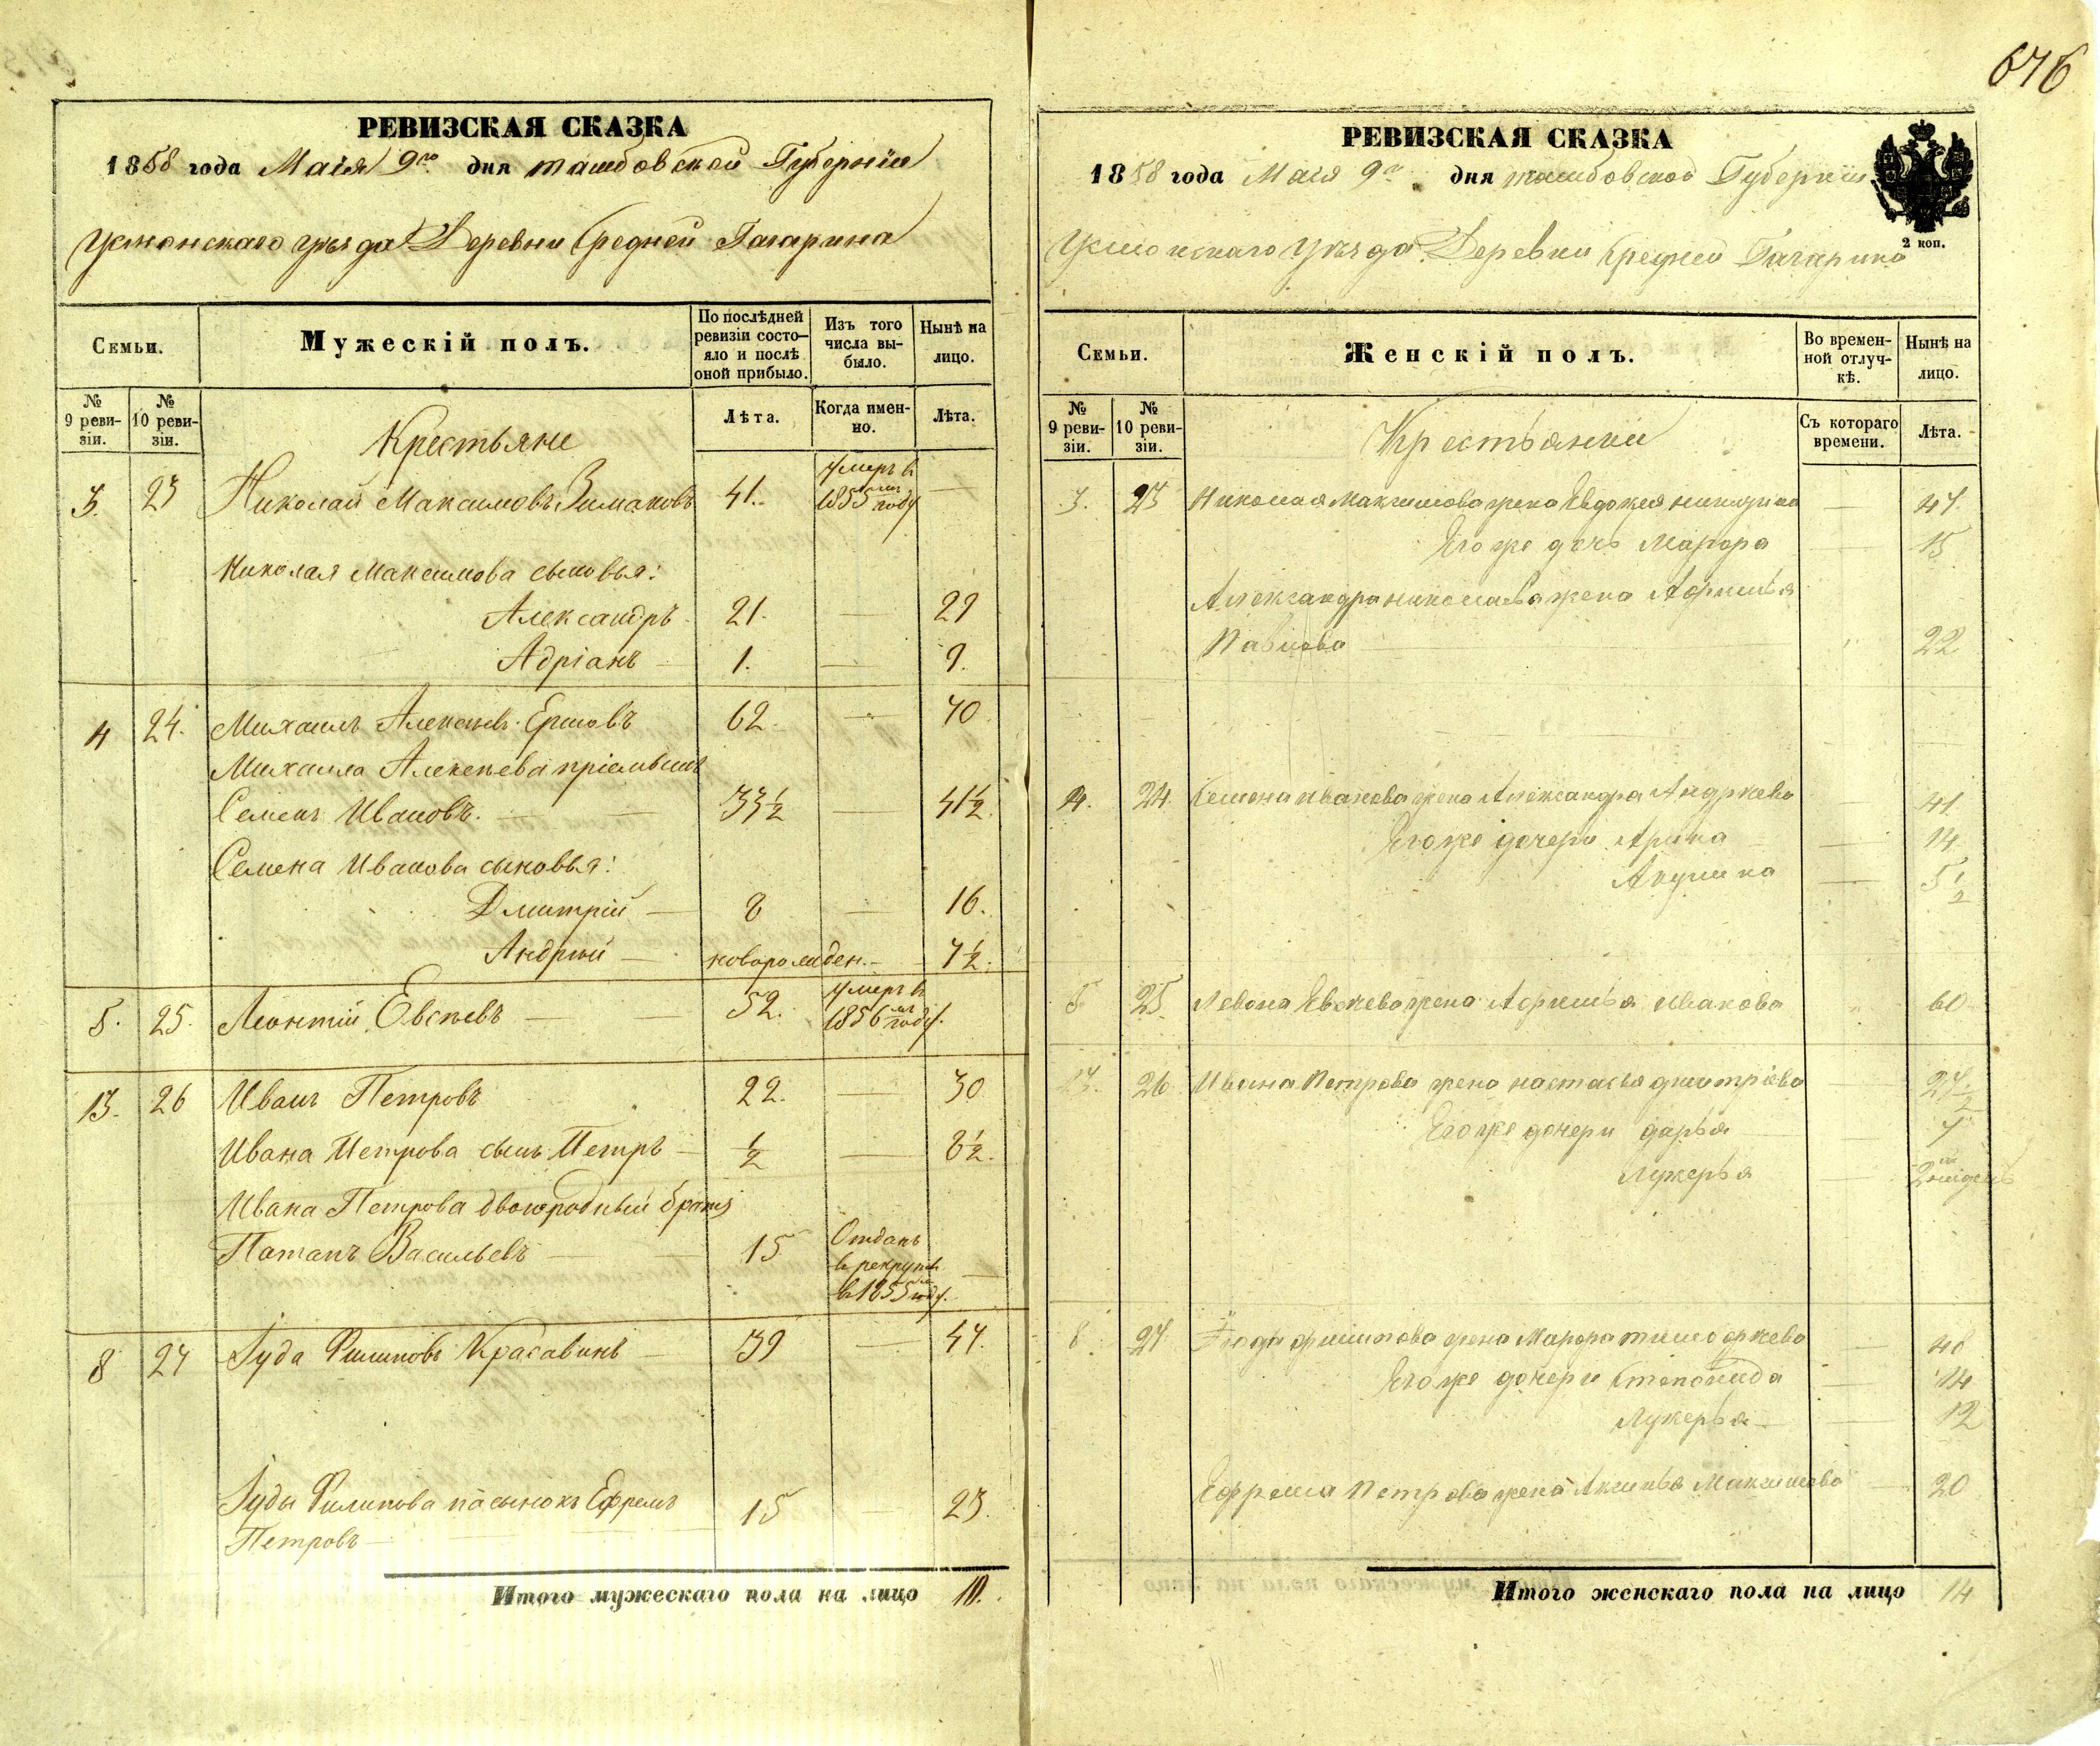 676
РЕВИЗСКАЯ СКАЗКА
1858 года Маія 9го дня тамбовской Губерніи
Усманскаго уѣзда Деревни Средней Гагарина
Семьи.
Мужескій полъ.
По послѣдней ревизіи состо-
яло и послѣ
оной прибыло.
Изъ того
числа вы-
было.
Нынѣ на
лицо.
№
9 реви-
зіи.
№
10 реви-
зіи.
Лѣта.
Когда имен-
но.
Лѣта.
Крестьяне
3. 23 Николай Максимовъ Зимаковъ 41. умеръ в 1855м году —
Николая Максимова сыновья:
Александръ 21. — 29
Адріанъ 1. — 9.
4 24. Михаилъ Алексѣевъ Ершовъ 62 — 70
Михаила Алексѣева пріемышъ
Семенъ Ивановъ. 33½ — 41½
Семена Иванова сыновья:
Дмитрій 8 — 16.
Андрей новорожден. — 7½.
5. 25. Леонтій Евсѣевъ 52. умеръ в 1856м году.
13. 26 Иванъ Петровъ 22. — 30
Ивана Петрова сынъ Петръ ½ — 8½.
Ивана Петрова двоюродный братъ
Потапъ Васильевъ 15 Отданъ в рекруты в 1855м году. —
8 27 Іуда Филиповъ Красавинъ 39 — 47.
Іуды Филипова пасынокъ Ефремъ 15 — 23.
Петровъ
Итого мужескаго пола на лицо 10.
РЕВИЗСКАЯ СКАЗКА
1858 года Маія 9го дня тамбовской Губерніи
2 коп.
Усманскаго Уѣзда Деревни Средней Гагарина
Семьи.
Женскій полъ.
Во времен-
ной отлуч-
кѣ.
Нынѣ на
лицо.
№
9 реви-
зіи.
№
10 реви-
зіи.
Съ котораго
времени.
Лѣта.
Крестьянки
3. 23 Николая Максимова жена Евдокея никитина — 47.
Его же дочь Марфа — 15
Александра николаева жена Афимья
Павлова 22
4. 24. Семена иванова жена Александра Андреева 41.
Его же дочери Арина — 14
Акулина — 5½
5 25. Левона Евсеева жена Афимья иванова 60
13. 26 Ивана Петрова жена настасья дмитріева 27½
Его же дочери дарья 7
Лукерья — 2
8. 27. филипова жена Марфа тимофеева — 46
Его же дочери Степонида — 14
Лукерья — 12
Ефрема Петрова жена Аксинья Максимова — 20
Итого женскаго пола на лицо 14